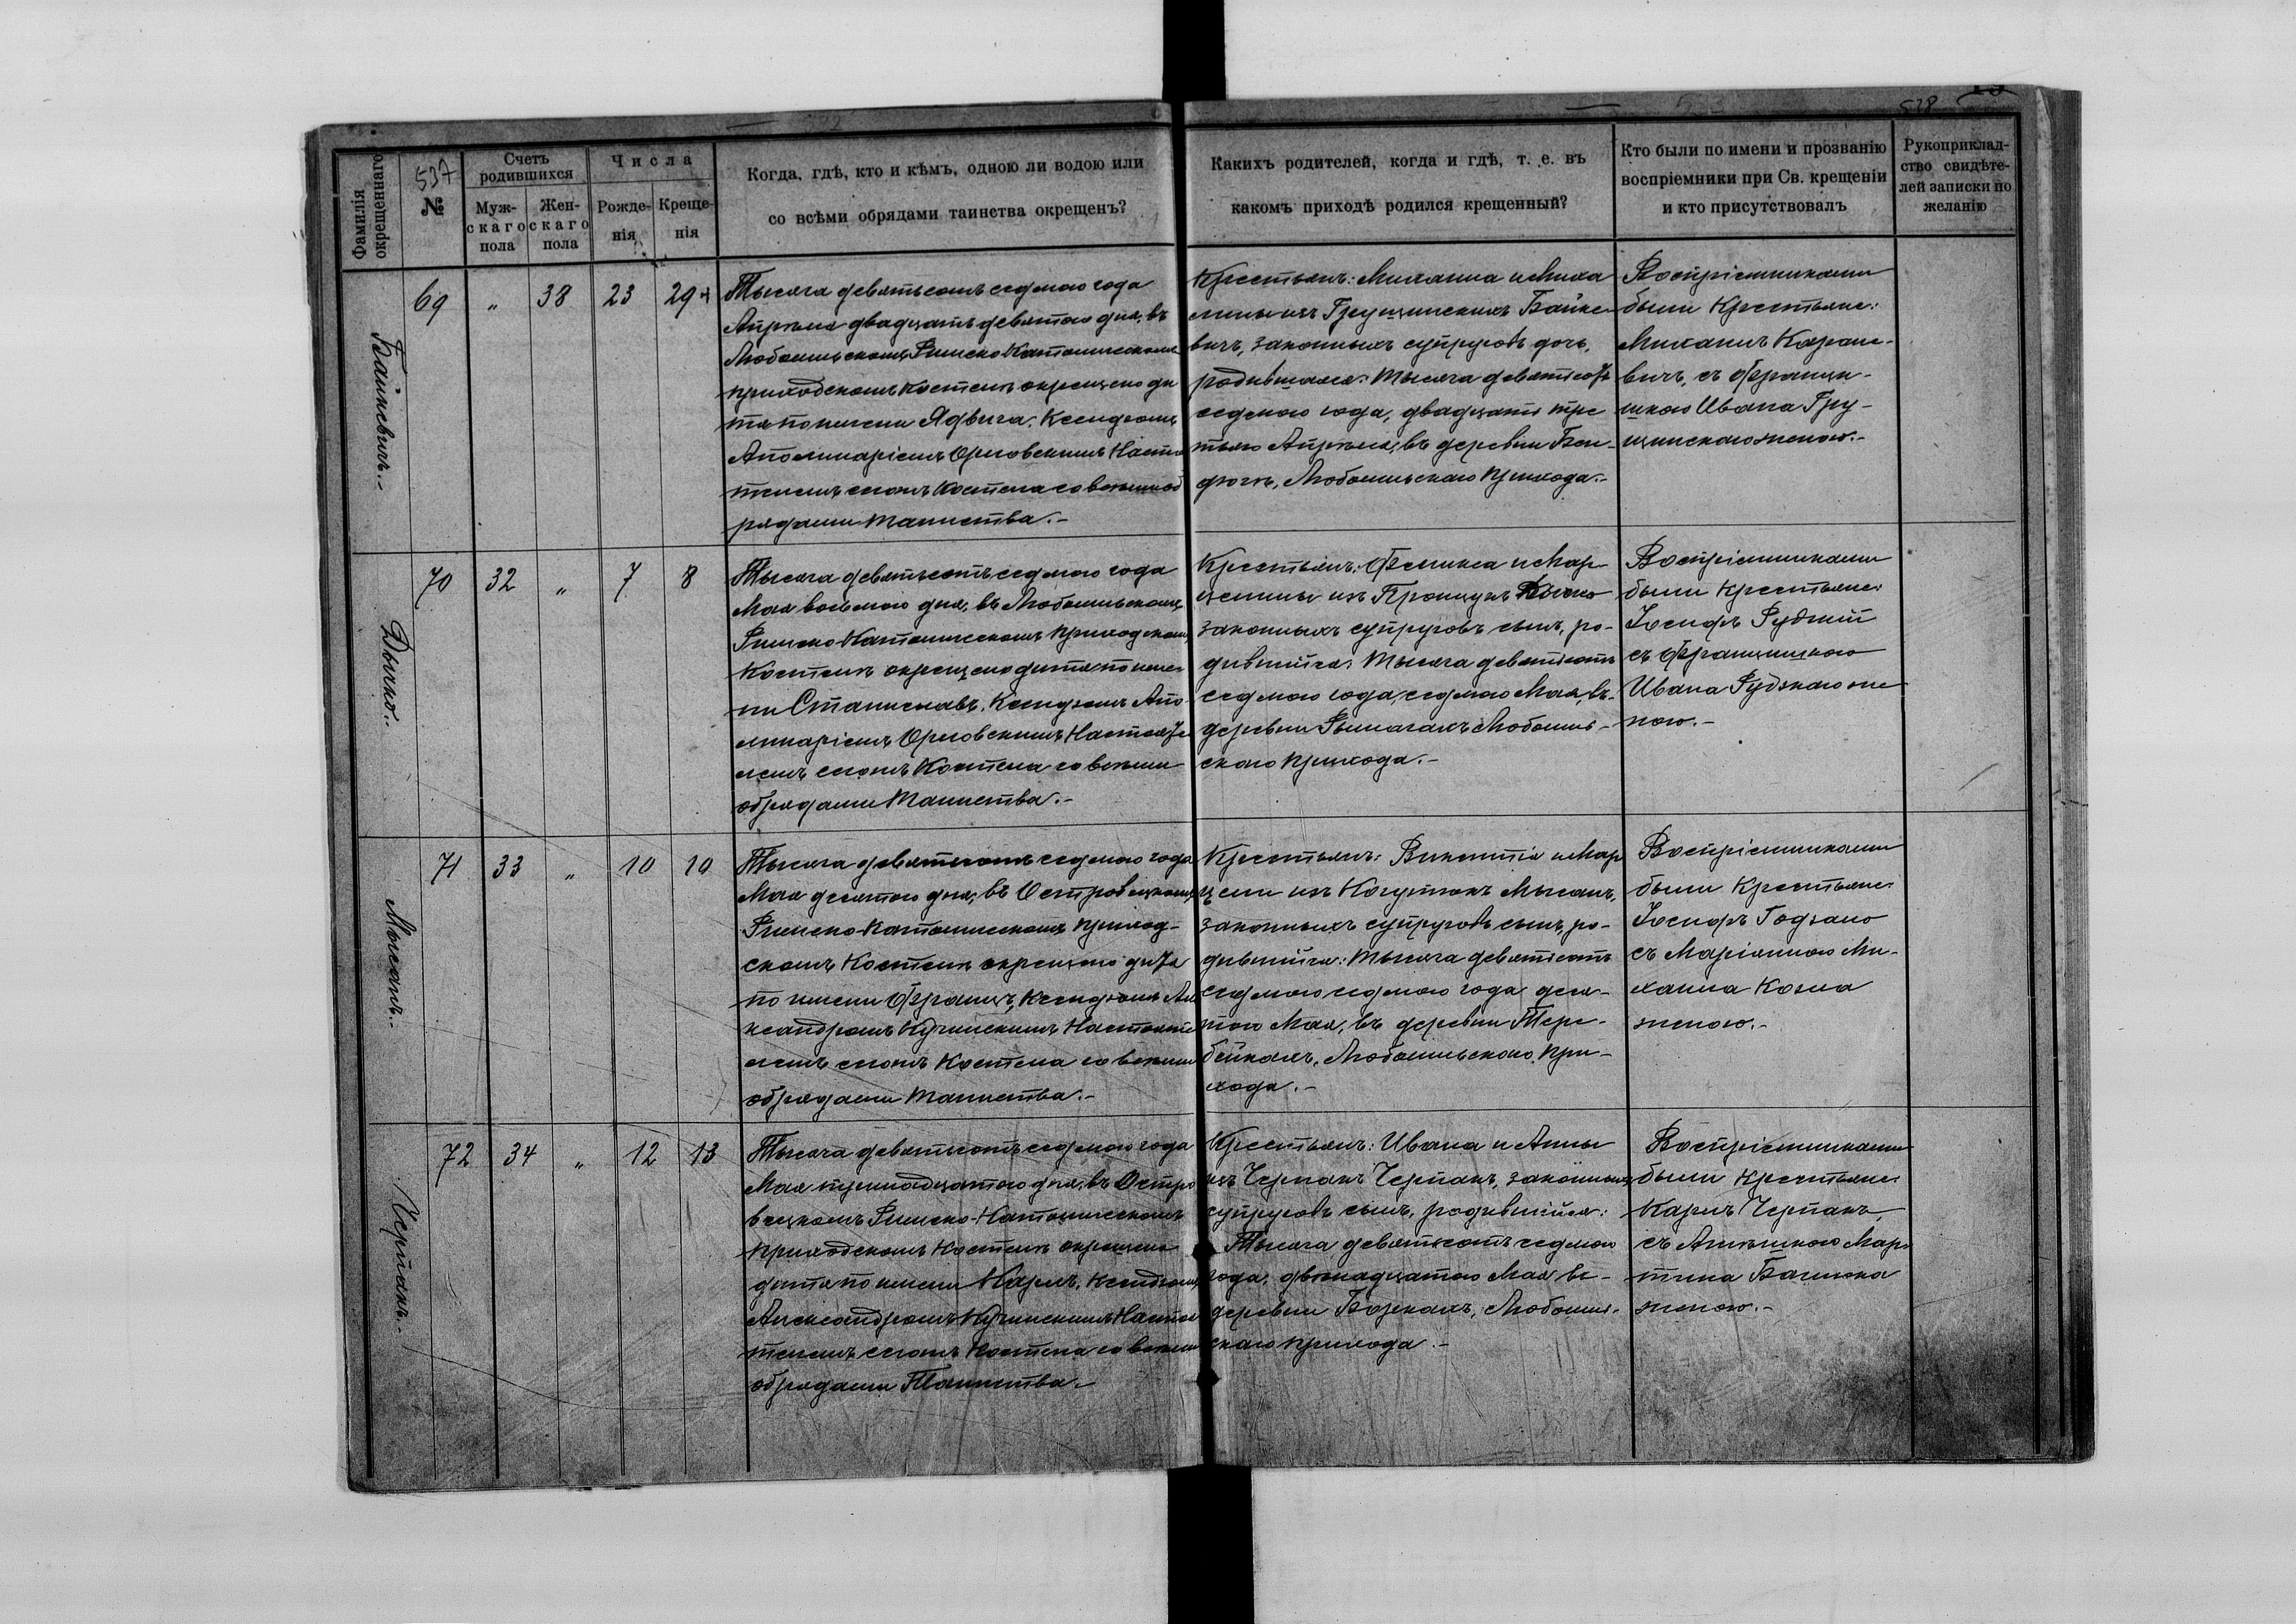 537
538
Фамилія окрещеннаго
№
Счетъ родившихся
Мужскаго пола
Женскаго пола
Числа
Рожденія
Крещенія
Когда, гдѣ, кто и кѣмъ, одною ли водою или
со всѣми обрядами таинства окрещенъ?
Какихъ родителей, когда и гдѣ, т. е. въ
какомъ приходѣ родился крещенный?
Кто были по имени и прозванію
воспріемники при Св. крещеніи
и кто присутствовалъ
Рукоприклад-
ство свидѣте-
лей записки по
желанію
Байкевичъ.-
69 " 38 23 29
Тысяча девятьсотъ седмого года
Апрѣля двадцать девятого дня, въ
Любошльскомъ Римско Католическомъ
приходскомъ Костелѣ окрещено ди
тя по имени Ядвига. Ксендзомъ
Аполинаріемъ Орловскимъ Настоя
телемъ сногъ Костела со всѣми об
рядами таинства.-
Крестьянъ: Михаила и Миха
лины изъ Грущинскихъ Байке
вичъ, законныхъ супруговъ дочь,
родившаяся: тысяча девятисотъ
седмого года, двадцать тре
тьяго Апрѣля, въ деревни Бон-
Любошльскаго прихода.-
Воспріемниками
были Крестьяне:
Михаилъ
вичъ, съ Францы-
шкою Ивана Гру-
щинскаго женою.-
Дычко.-
70 32 " 7 8
Тысяча девятьсотъ седмого года
Мая восьмого дня, въ Любошльскомъ
Римско-Католическомъ приходскомъ
Костелѣ окрещено дитя по име
ни Станиславъ. Ксендзомъ Апо
линаріемъ Орловскимъ Настояте
лемъ сногъ Костела со всѣми
обрядами таинства.-
Крестьянъ: Феликса и Мар
целины изъ Дычко
законныхъ супруговъ сынъ, ро-
дившійся: тысяча девятисотъ
седмого года, седмого Мая, въ
деревни Рымагахъ Любошль-
скаго прихода.-
Воспріемниками
были Крестьяне:
Іосифъ Рудзкій
съ Францишкою
Ивана Рудзкаго же
ною.-
Мысанъ.-
71 33 " 10 10
Тысяча девятьсотъ седмого года
Мая десятого дня, въ Островецкомъ
Римско-Католическомъ приход-
скомъ Костелѣ окрещено дитя
по имени Францъ, Ксендзомъ Але
ксандромъ Кучинскимъ Настояте
лемъ сногъ Костела со всѣми
обрядами таинства.-
Крестьянъ: Викентія и Мар
цели изъ Мысанъ,
законныхъ супруговъ сынъ, ро-
дившійся: тысяча девятисотъ
седмого седмого года деся-
того Мая, въ деревни Тере-
бейкахъ, Любошльскаго при-
хода.-
Воспріемниками
были Крестьяне:
Іосифъ Годзало
съ Маріянною Ми-
хаила Козла
женою.-
Черпакъ.-
72 34 " 12 13
Тысяча девятьсотъ седмого года
Мая тринадцатого дня, въ Остро
вецкомъ Римско-Католическомъ
приходскомъ Костелѣ окрещено
дитя по имени Карлъ, Ксендзомъ
Александромъ Кучинскимъ Настоя
телемъ сногъ Костела со всѣми
обрядами Таинства.-
Крестьянъ: Ивана и Анны
изъ Черпакъ Черпакъ, законныхъ
супруговъ сынъ, родившійся:
Тысяча девятьсотъ седмого
года, двѣнадцатого Мая въ-
деревни Любошль-
скаго прихода.-
Воспріемниками
были Крестьяне:
Карлъ Черпакъ,
съ Мар
тина
женою.-